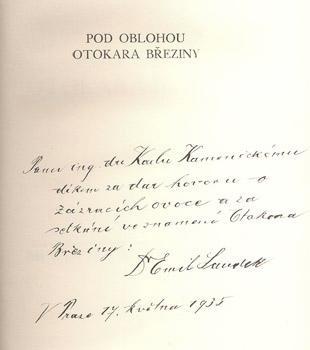 POD OBLOHOU
OTOKARA BŘEZINY
Panu ing. dru Karlu Kamenickému
díkem za dar hovoru o
zázracích ovoce a za
setkání ve znamení Otakara
Březiny:
Dr Emil Saudek
V Praze 17. května 1935